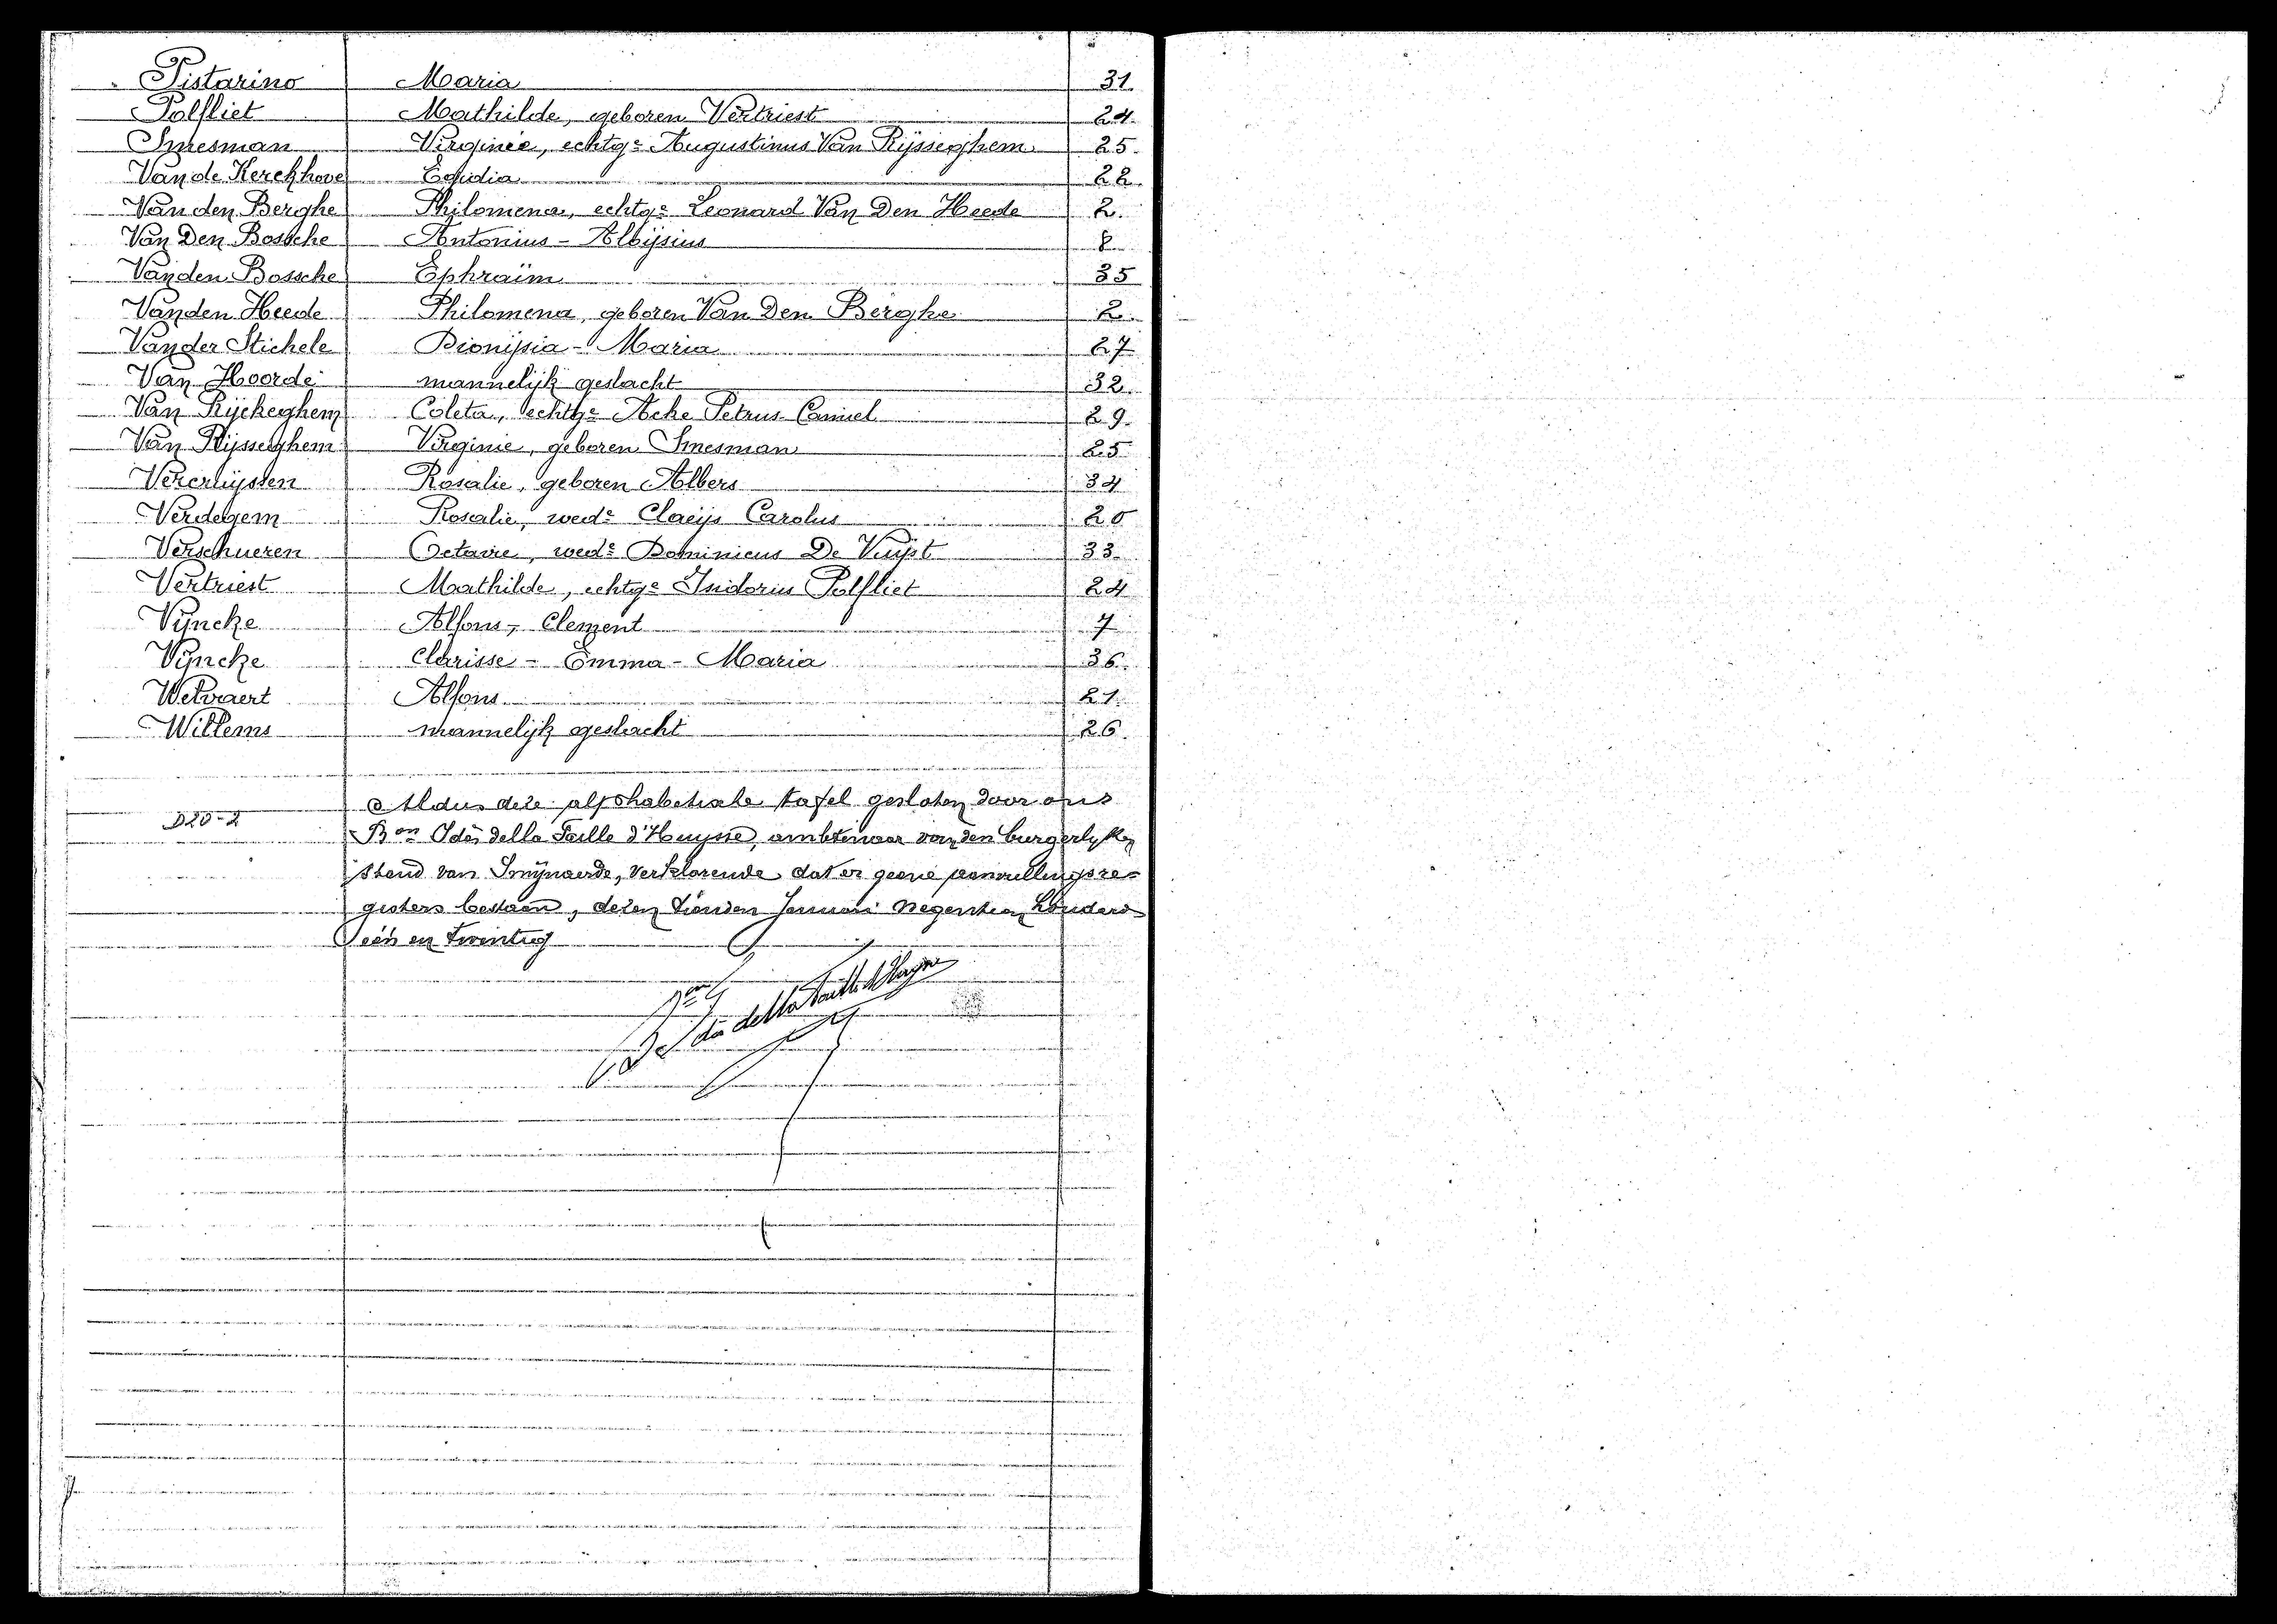 Pistarino Maria 31.
Polfliet Mathilde, geboren Vertriest 24.
Smesman Virginie, echtge Augustinus Van Rijsseghem 25.
Van de Kerckhove Egidia 22.
Van den Berghe Philomena, echtge Leonard Van Den Heede 2.
Van Den Bossche Antonius-Aloijsius 8
Vanden Bossche Ephraïm 35
Vanden Heede Philomena, geboren Van Den Berghe 2.
Vander Stichele Dionijsia-Maria 27
Van Hoorde mannelijk geslacht 32.
Van Rijckeghem Coleta, echtge Acke Petrus Camiel 29.
Van Rijsseghem Virginie, geboren Smesman 25
Vercruijssen Rosalie, geboren Albers 34
Verdegem Rosalie, wede Claeijs Carolus 20
Verschueren Octavie, wede Dominicus De Vuijst 33.
Vertriest Mathilde, echtge Isidorius Polfliet 24
Vijncke Alfons, Clement 7
Vijncke Clarisse-Emma-Maria 36.
Welvaert Alfons 21.
Willems mannelijk geslacht 26.
Aldus deze alphabetische tafel gesloten door ons
Bon della Faille d'Huysse, ambtenaar van den burgerlyken
stand van Smijnaerde, verklarende dat er geene aanvullingsre-
gisters bestaan, dezen tienden Januari negentien honderd
een en twintig
Bon della Faille d'Huysse